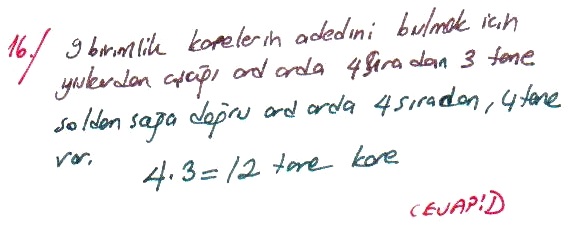 16./ 9 birimlik karelerin adedini bulmak için
yukardan aşağı ard arda 4 sıradan 3 tane
soldan sağa doğru ard arda 4 sıradan, 4 tane
var.
4.3=12 tane kare
CEVAP:D